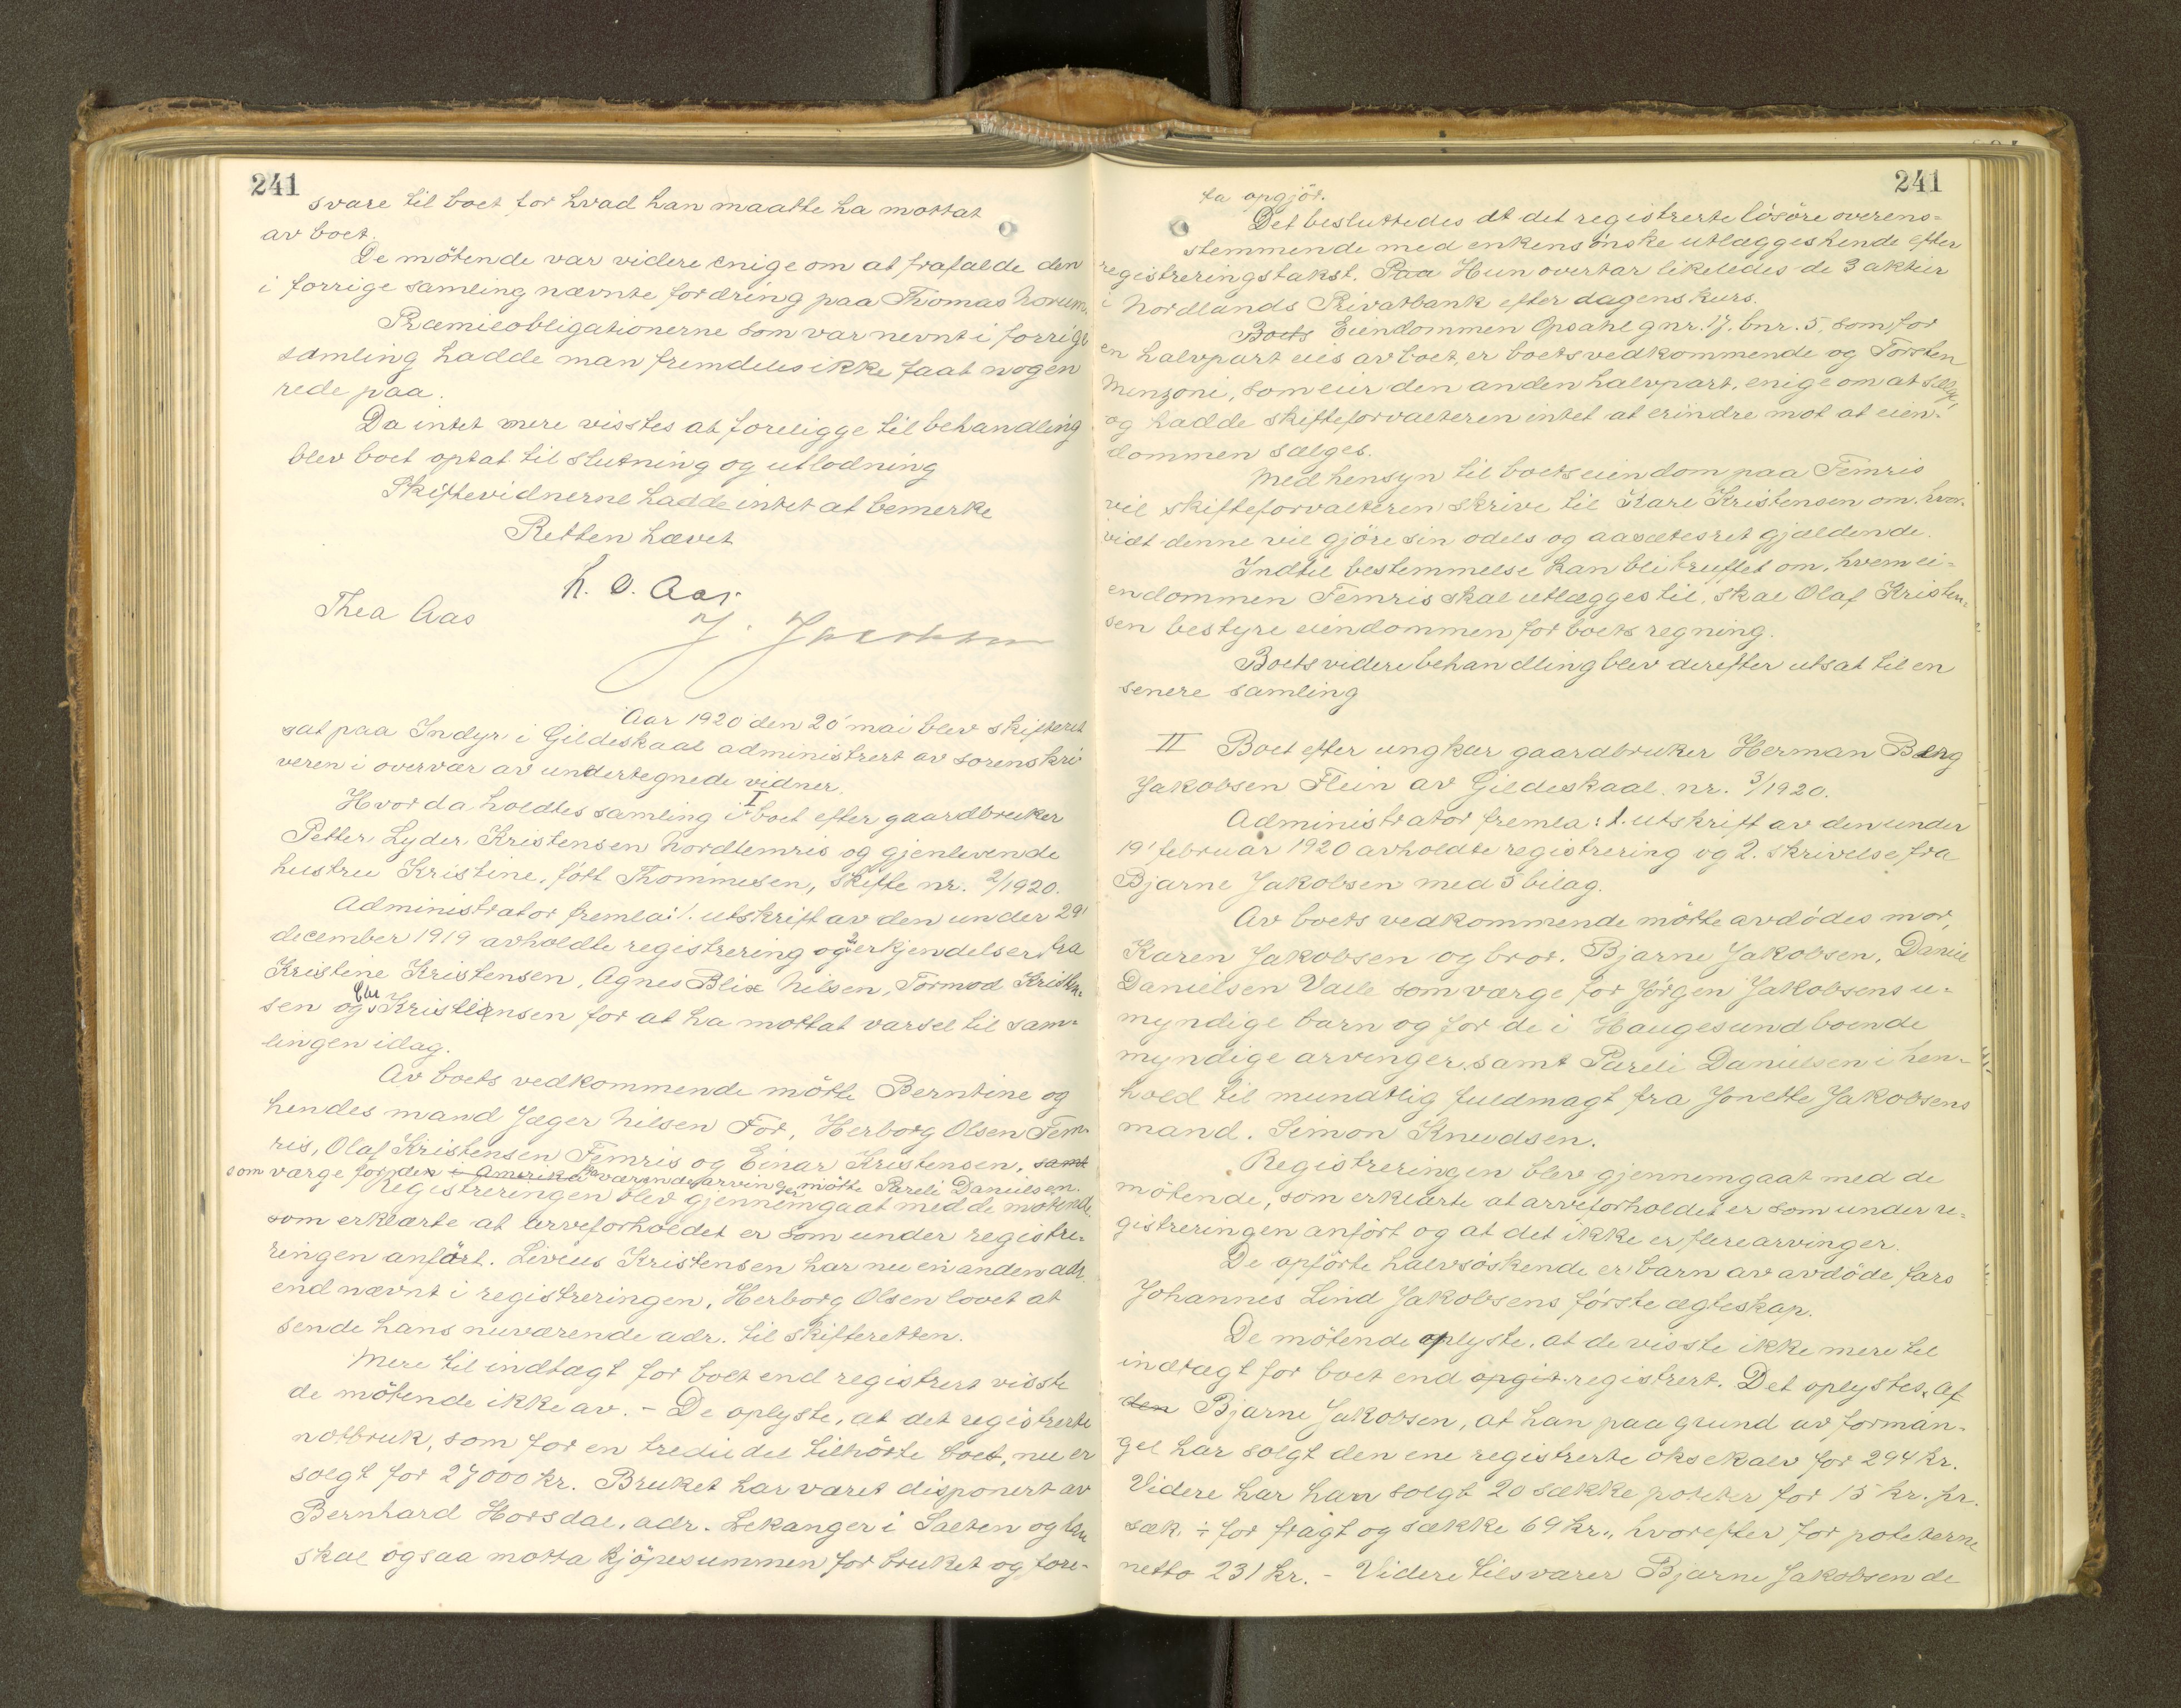 241
svare til boet for hvad han maatte ha mottat
av boet.
De mötende var videre enige om at frafalde den
i forrige samling nævnte fordring paa Thomas Norum.
Præmieobligationerne som var nevnt i forrige
samling hadde man fremdeles ikke faat nogen
rede paa.
Da intet mere visstes at foreligge til behandling
blev boet optat til slutning og utlodning
Skiftevidnerne hadde intet at bemerke
Retten hævet
H. O. Aas
Thea Aas
J. Jacobsen
Aar 1920 den 20' mai blev skifteret
sat paa Indyr i Gildeskaal administrert av sorenskri
veren i overvær av undertegnede vidner.
Hvor da holdtes samling i I boet efter gaardbruker
Petter Lyder Kristensen Nordfemris og gjenlevende
hustru Kristine, født Thommesen, skifte nr. 2/1920.
Administrator fremla: 1. utskrift av den under 29'
december 1919 avholdte registrering og 2 erkjendelser fra
Kristine Kristensen, Agnes Blix Nilsen, Tormod Kristen-
sen og Kristensen for at ha mottat varsel til sam-
lingen idag.
Av boets vedkommende mötte Berntine og
hendes mand Jæger Nilsen För, Herborg Olsen Fem-
ris, Olaf Kristensen Femris og Einar Kristensen, samt
som værge for den i Amerika fraværende arvinger mötte Pareli Danielsen.
Registreringen blev gjennemgaat med de mötende,
som erklærte at arveforholdet er som under registre-
ringen anført. Livius Kristensen har nu en anden adr.
end nævnt i registreringen, Herborg Olsen lovet at
sende hans nuværende adr. til skifteretten.
Mere til indtægt for boet end registrert visste
de mötende ikke av. - De oplyste, at det registrerte
notbruk, som for en trediedel tilhörte boet, nu er
solgt for 27000 kr. Bruket har været disponert av
Bernhard Horsdal, adr. Lekanger i Salten og han
skal ogsaa motta kjöpesummen for bruket og fore-
241
ta opgjör.
Det besluttedes at det registrerte lösöre overens-
stemmende med enkens önske utlægges hende efter
registreringstakst. Paa Hun overtar likeledes de 3 aktier
i Nordlands Privatbank efter dagens kurs.
Boets Eiendommen Opsahl gnr. 17, bnr. 5, som for
en halvpart eies av boet, er boets vedkommende og Torsten
Menzoni, som eier den anden halvpart, enige om at sælge,
og hadde skifteforvalteren intet at erindre mot at eien-
dommen sælges.
Med hensyn til boets eiendom paa Femris
vil skifteforvalteren skrive til Karl Kristensen om, hvor-
vidt denne vil gjöre sin odels og aasætesret gjældende.
Indtil bestemmelse kan bli truffet om, hvem ei-
endommen Femris skal utlægges til, skal Olaf Kristen-
sen bestyre eiendommen for boets regning.
Boets videre behandling blev derefter utsat til en
senere samling
II Boet efter ungkar gaardbruker Herman Berg
Jakobsen Flein av Gildeskaal. nr. 3/1920.
Administrator fremla: 1. utskrift av den under
19' februar 1920 avholdte registrering og 2. skrivelse fra
Bjarne Jakobsen med 5 bilag.
Av boets vedkommende mötte avdödes mor,
Karen Jakobsen og bror. Bjarne Jakobsen, Daniel
Danielsen Valle som værge for Jörgen Jakobsens u-
myndige barn og for de i Haugesund boende
myndige arvinger, samt Pareli Danielsen i hen-
hold til mundtlig fuldmagt fra Jonette Jakobsens
mand. Simon Knudsen.
Registreringen blev gjennemgaat med de
mötende, som erklærte at arveforholdet er som under re-
gistreringen anfört og at det ikke er flere arvinger.
De opförte halvsöskende er barn av avdöde fars
Johannes Lind Jakobsens förste ægteskap.
De mötende oplyste, at de visste ikke mere til
indtægt for boet end opgit registrert. Det oplystes, af
den Bjarne Jakobsen, at han paa grund av forman-
gel har solgt den ene registrerte oksekalv for 294 kr.
Videre har han solgt 20 sække poteter for 15 kr. pr.
sæk ÷ for fragt og sække 69 kr., hvorefter for poteterne
netto 231 kr. - Videre tilsvarer Bjarne Jakobsen de